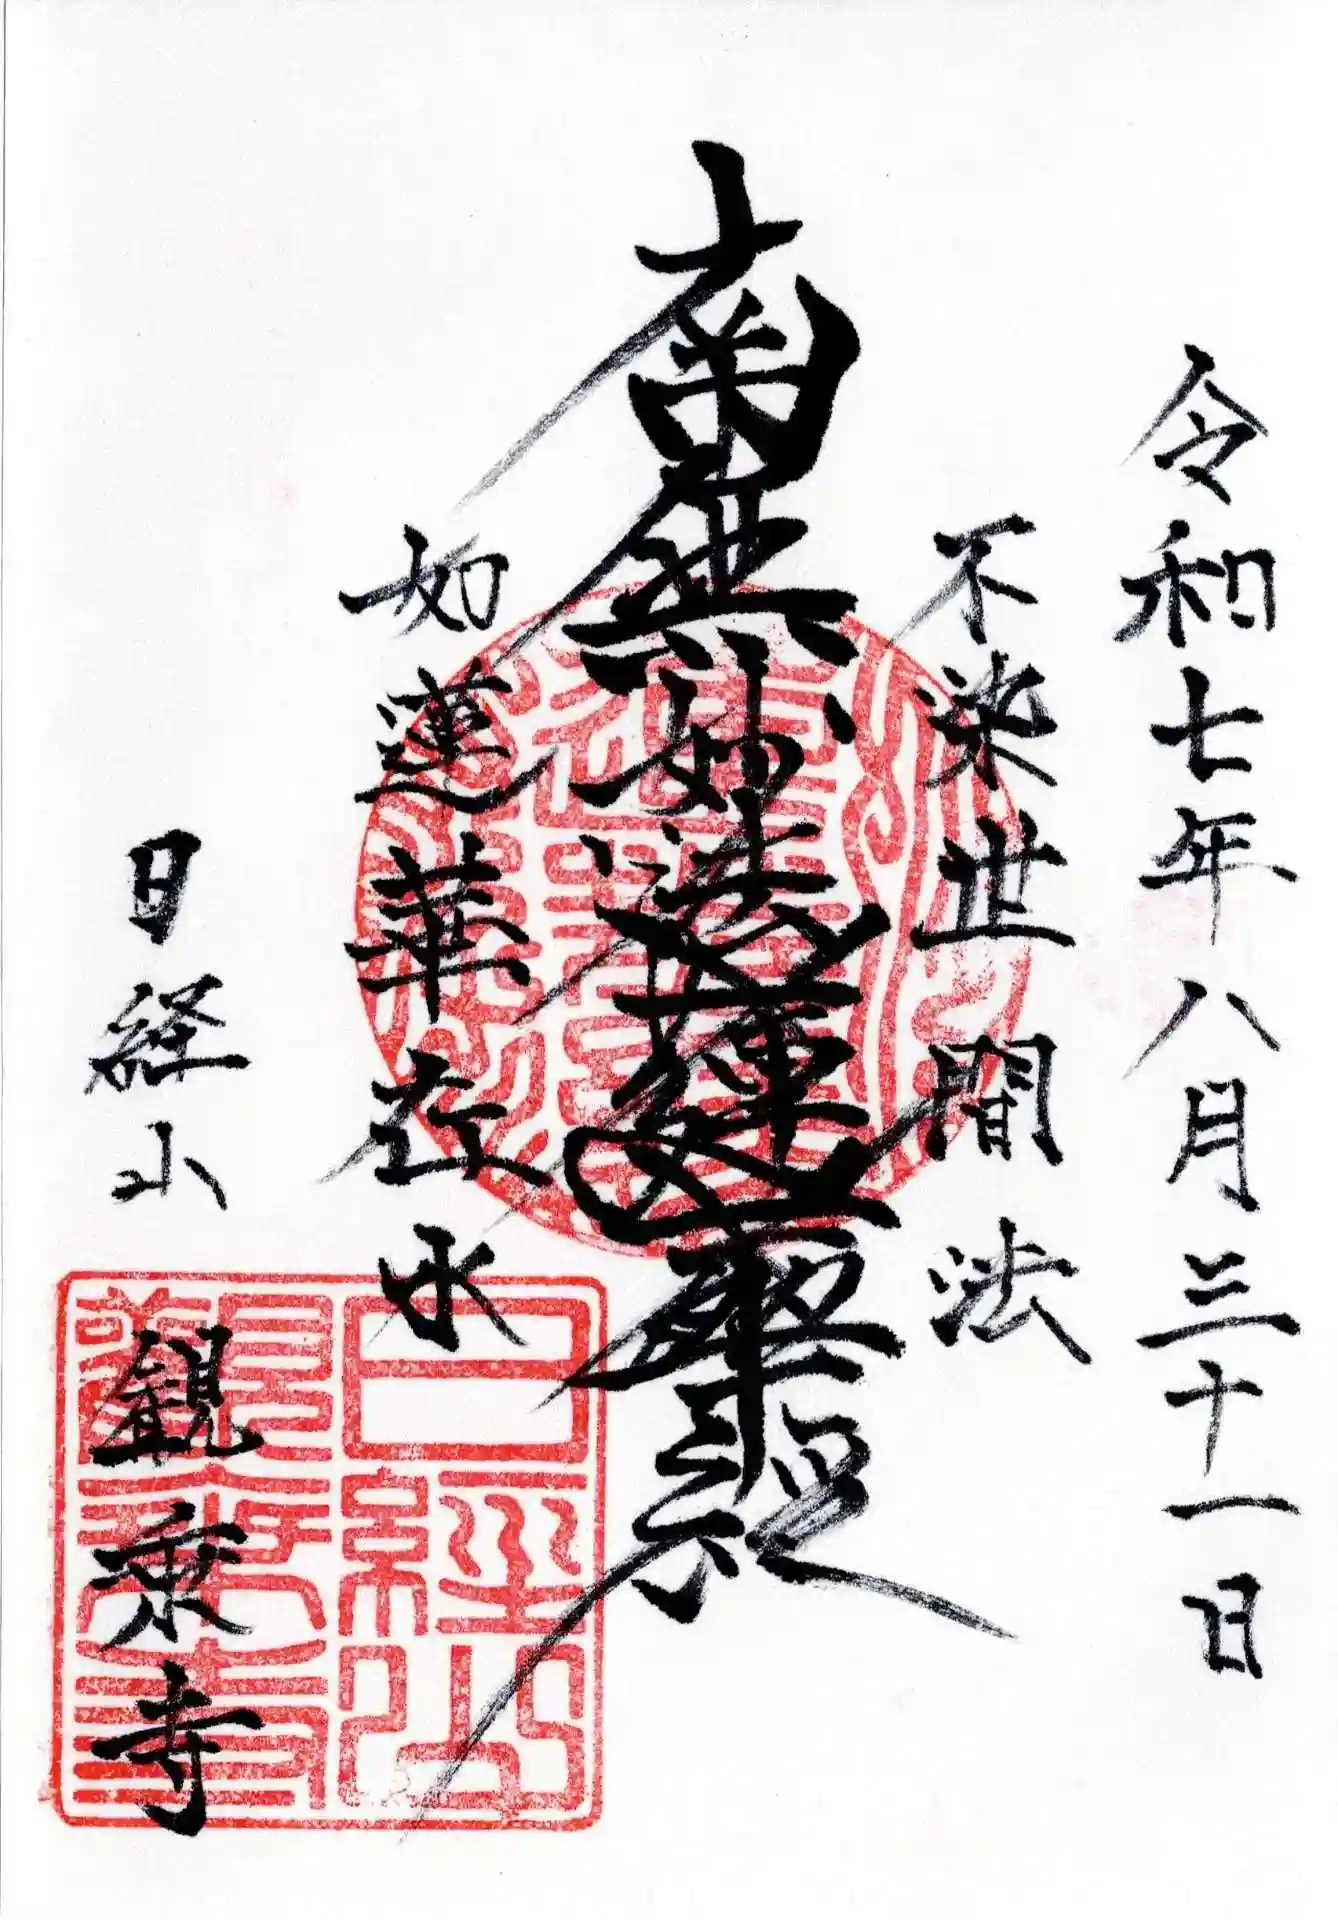 令和七年八月三十一日
不染世間法
南無妙法蓮華経
如蓮華在水
日経山
觀乗寺